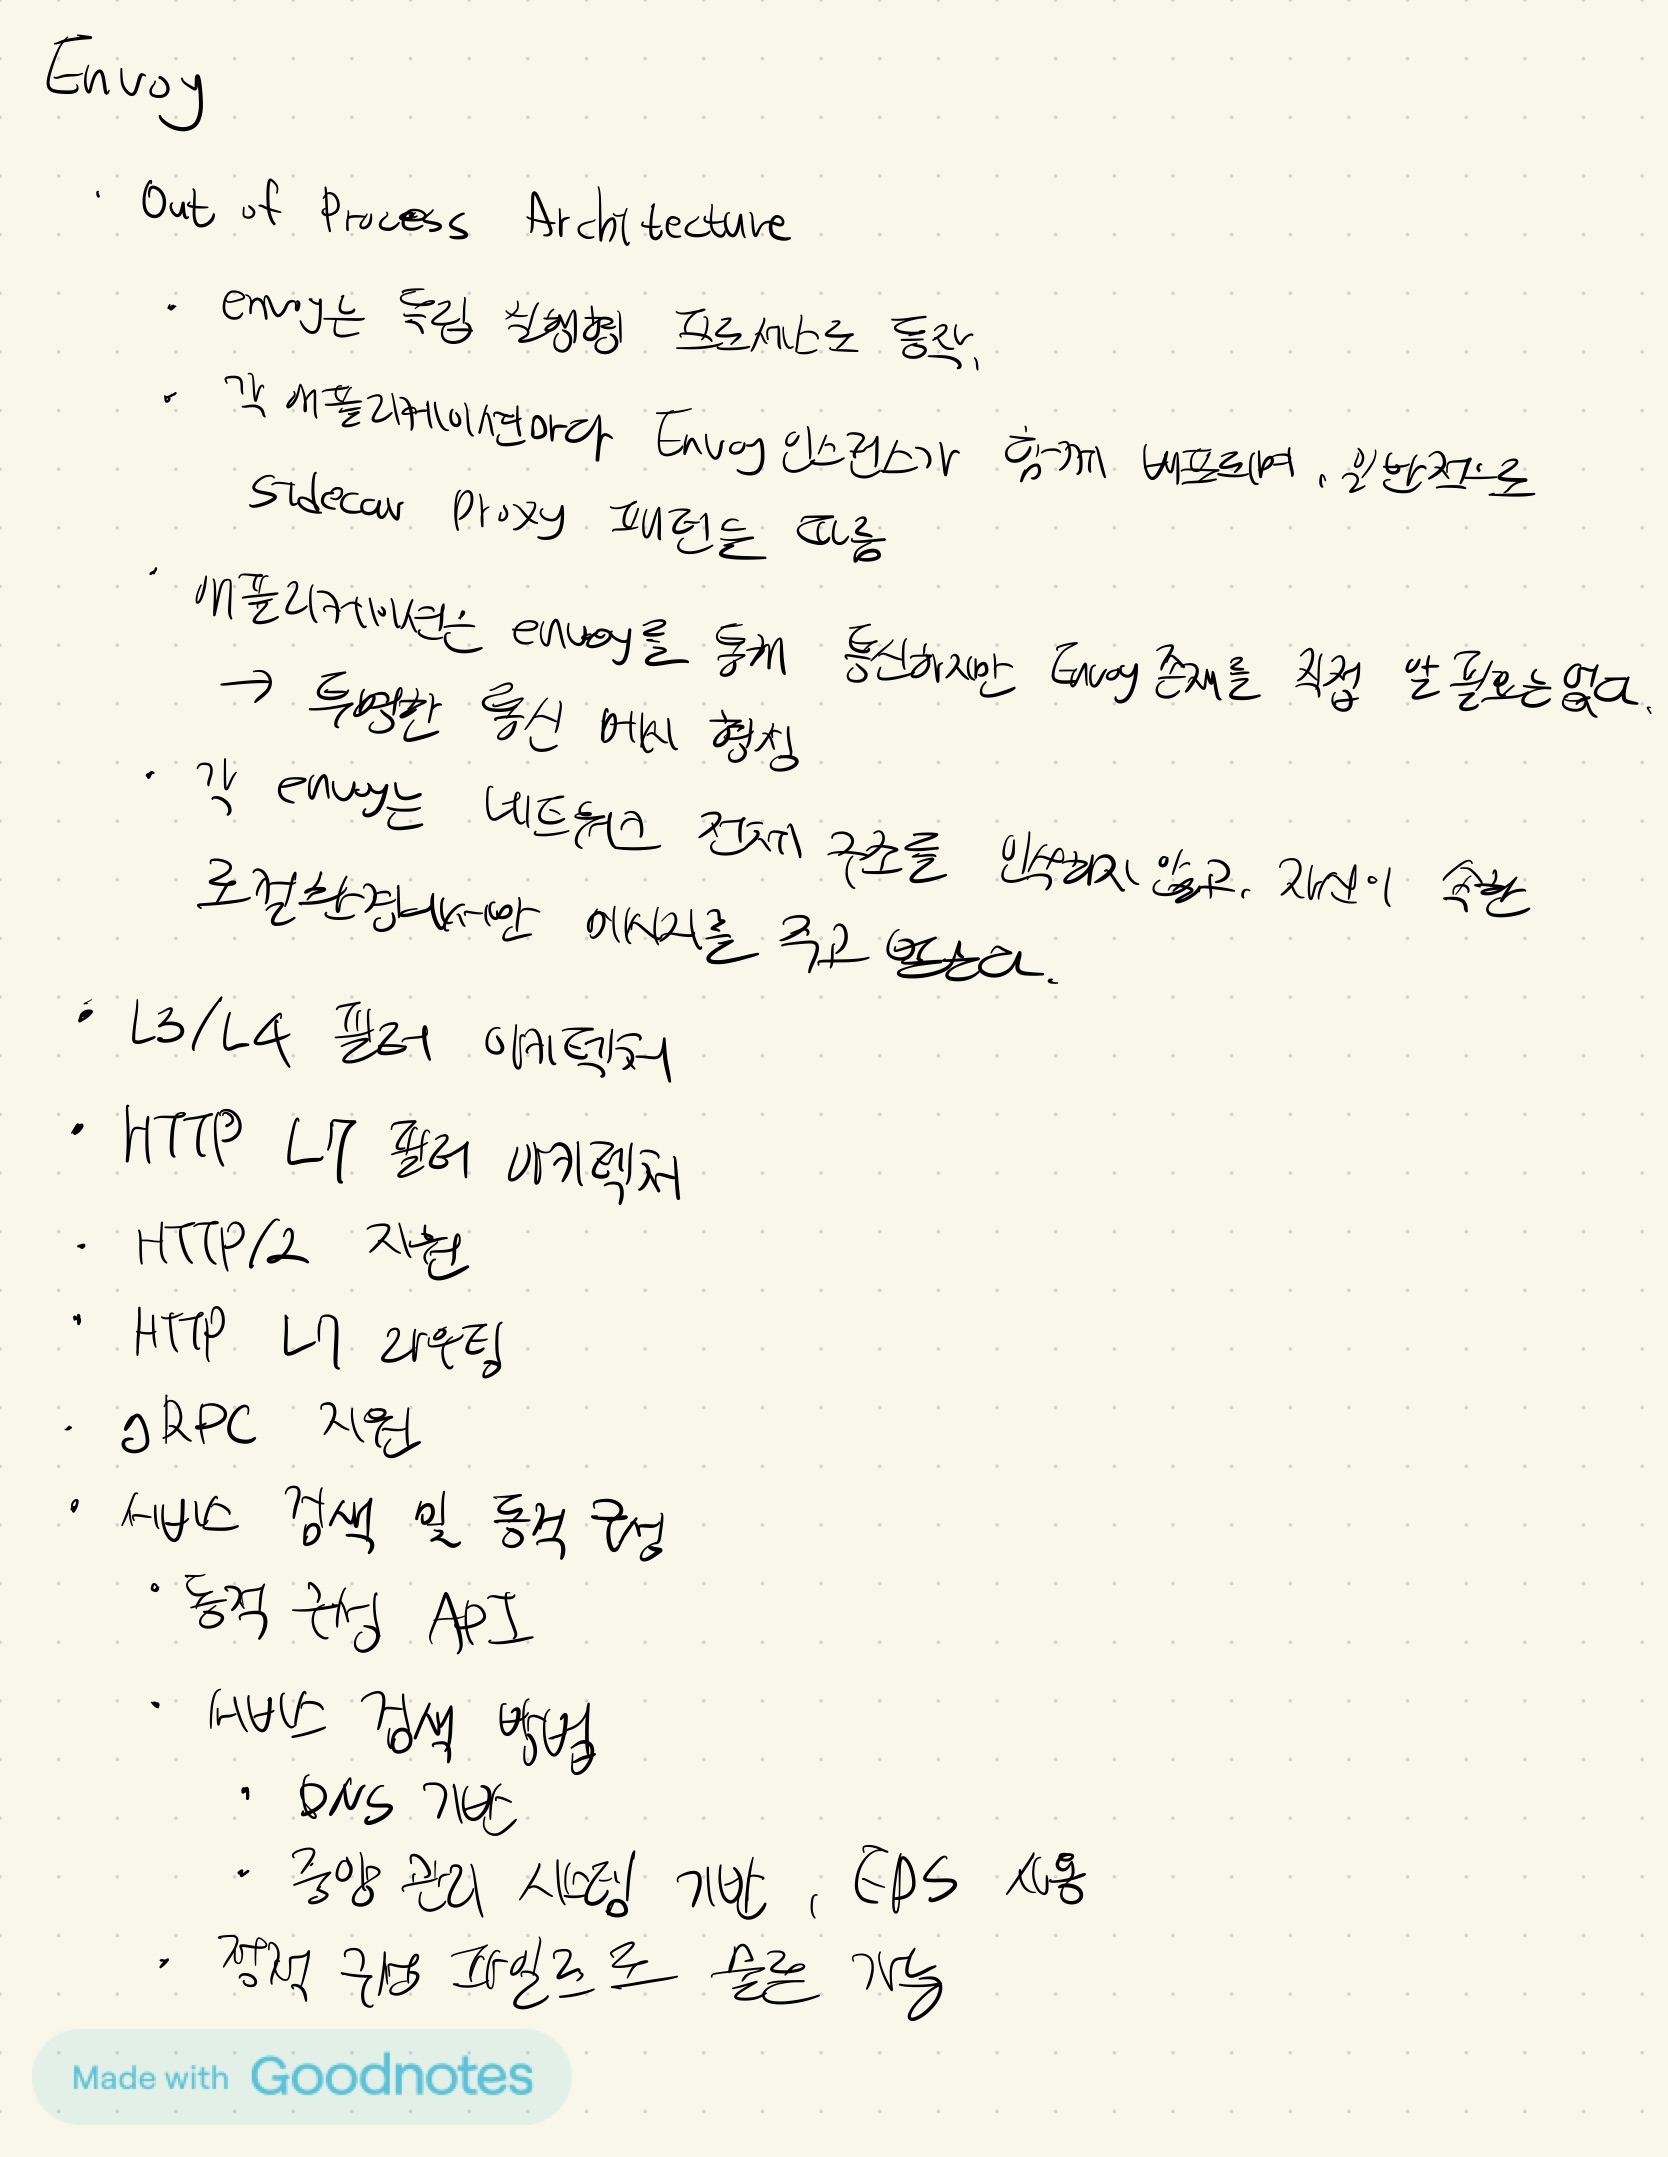 Envoy
· Out of Process Architecture
· envoy는 독립 실행형 프로세스로 동작.
· 각 애플리케이션마다 Envoy 인스턴스가 함께 배포되며, 일반적으로
sidecar proxy 패턴을 따름
· 애플리케이션은 envoy를 통해 통신하지만 Envoy 존재를 직접 알 필요는 없다.
→ 투명한 통신 메시 형성
· 각 envoy는 네트워크 전체 구조를 인식하지 않고, 자신이 속한
로컬환경에서만 메시지를 주고 받는다.
· L3/L4 필터 아키텍처
· HTTP L7 필터 아키텍처
· HTTP/2 지원
· HTTP L7 라우팅
· gRPC 지원
· 서비스 검색 및 동적 구성
· 동적 구성 API
· 서비스 검색 방법
· DNS 기반
· 중앙 관리 시스템 기반, EDS 사용
· 정적 구성 파일으로도 가능
Made with Goodnotes